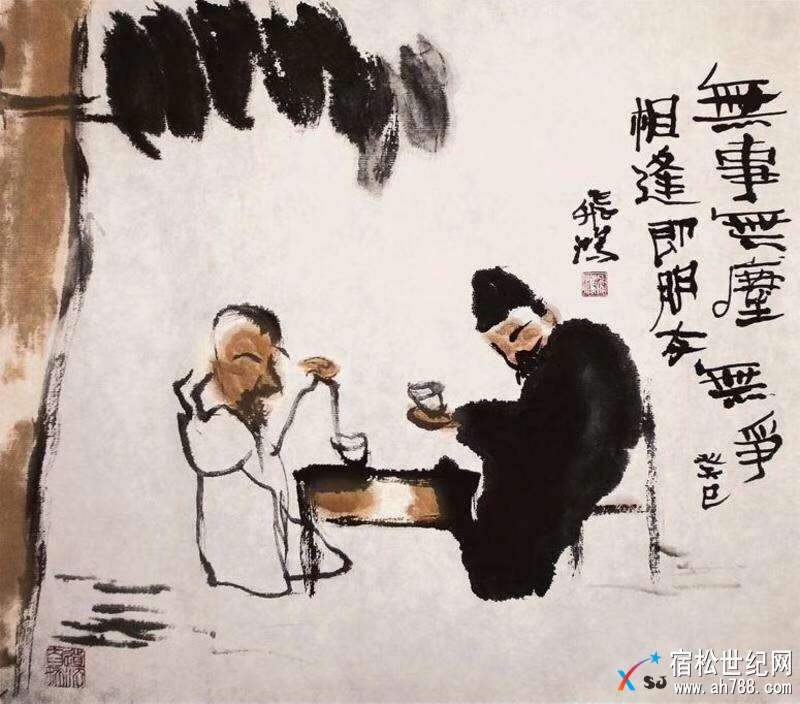 無事無塵無爭
癸巳
相逢即朋友
飛鴻
SJ 宿松世纪网
www.ah788.com